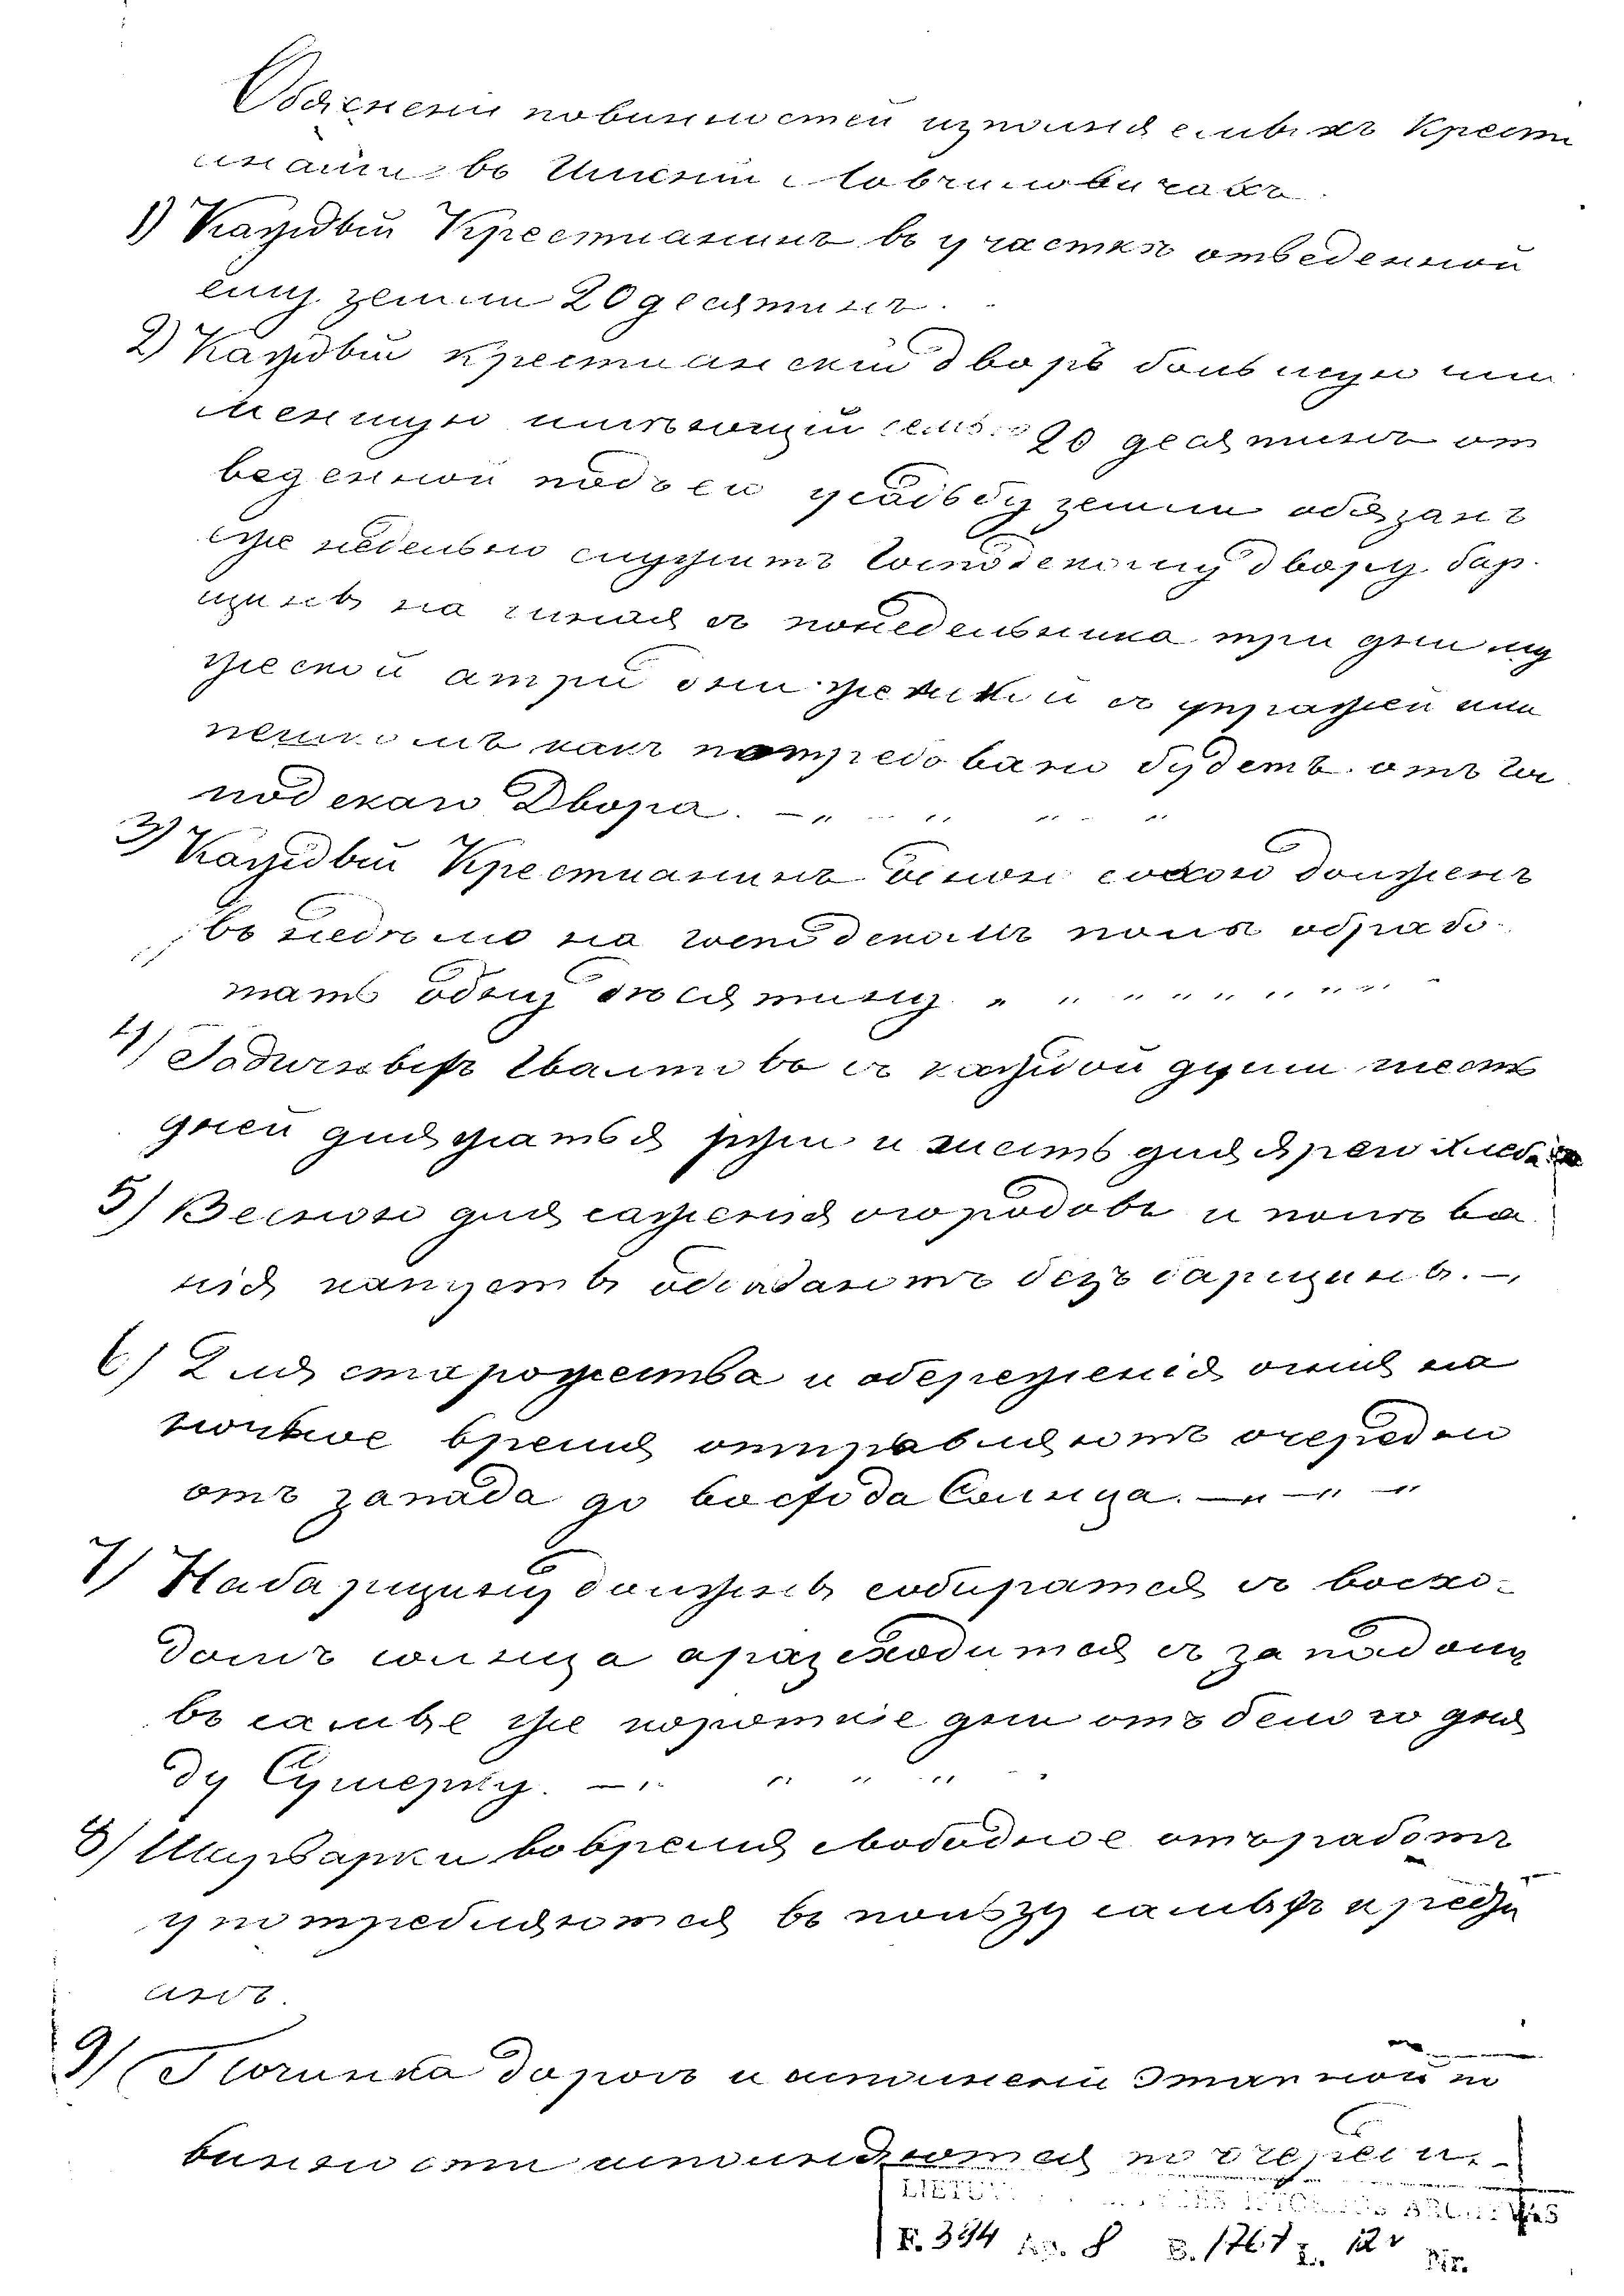 Обяснени повинностей изполняемыхъ Крестя
нами въ Имени Ловчиловичахъ.
1) Каждый Крестианинъ въ участкѣ отведенной
ему земли 20 десятинъ.
2) Каждый крестианский дворъ большую или
меншую имѣющий семью 20 десятинъ от
веденной подъ ею усадьбу земли обязанъ
еженедельно служитъ Господскому двору бар
щины на чиная съ понедельника три дни му
жеской а три дни женский съ упражей или
пешкомъ какъ потребовано будетъ отъ Гос
подскаго Двора.
3) Каждый Крестианинъ весною сохою долженъ
въ неделю на господскомъ поля обрабо
тать одну десятину
4) Годичныхъ Гвалтовъ съ каждой души шесть
дней для жатья ржи и шесть для яраго хлеба
5) Весною для саженія огородовъ и поливва
нія капусты обиодаютъ безъ барщины.
6) Для сторожества и обереженія огня на
ночное время отправляютъ очередю
отъ запада до восхода Солнца.
7) На барщину должны собиратся съ восхо-
домъ солнца а разсходится съ западомъ
въ самые же короткіе дни отъ белого дня
ду Сумерку.
8) Шарварки во время свободное отъ работъ
употребляются въ ползу самыхъ крестьи
янъ.
9) Починка дорогъ и исполнени этапной по
винности исполняются по очереди.
F. 394 Ap. 8 B. 1767 L. 12v